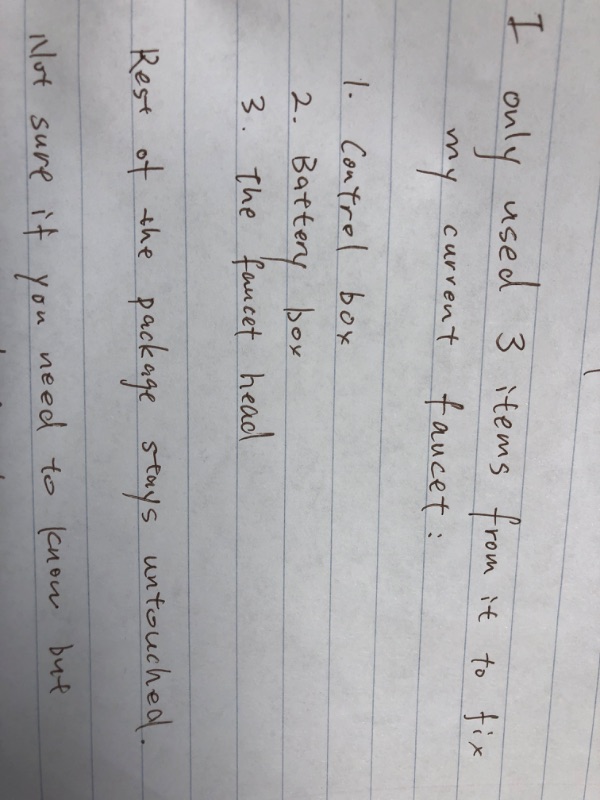 I only used 3 items from it to fix
my current faucet:
1. Control box
2. Battery box
3. The faucet head
Rest of the package stays untouched.
Not sure if you need to know but